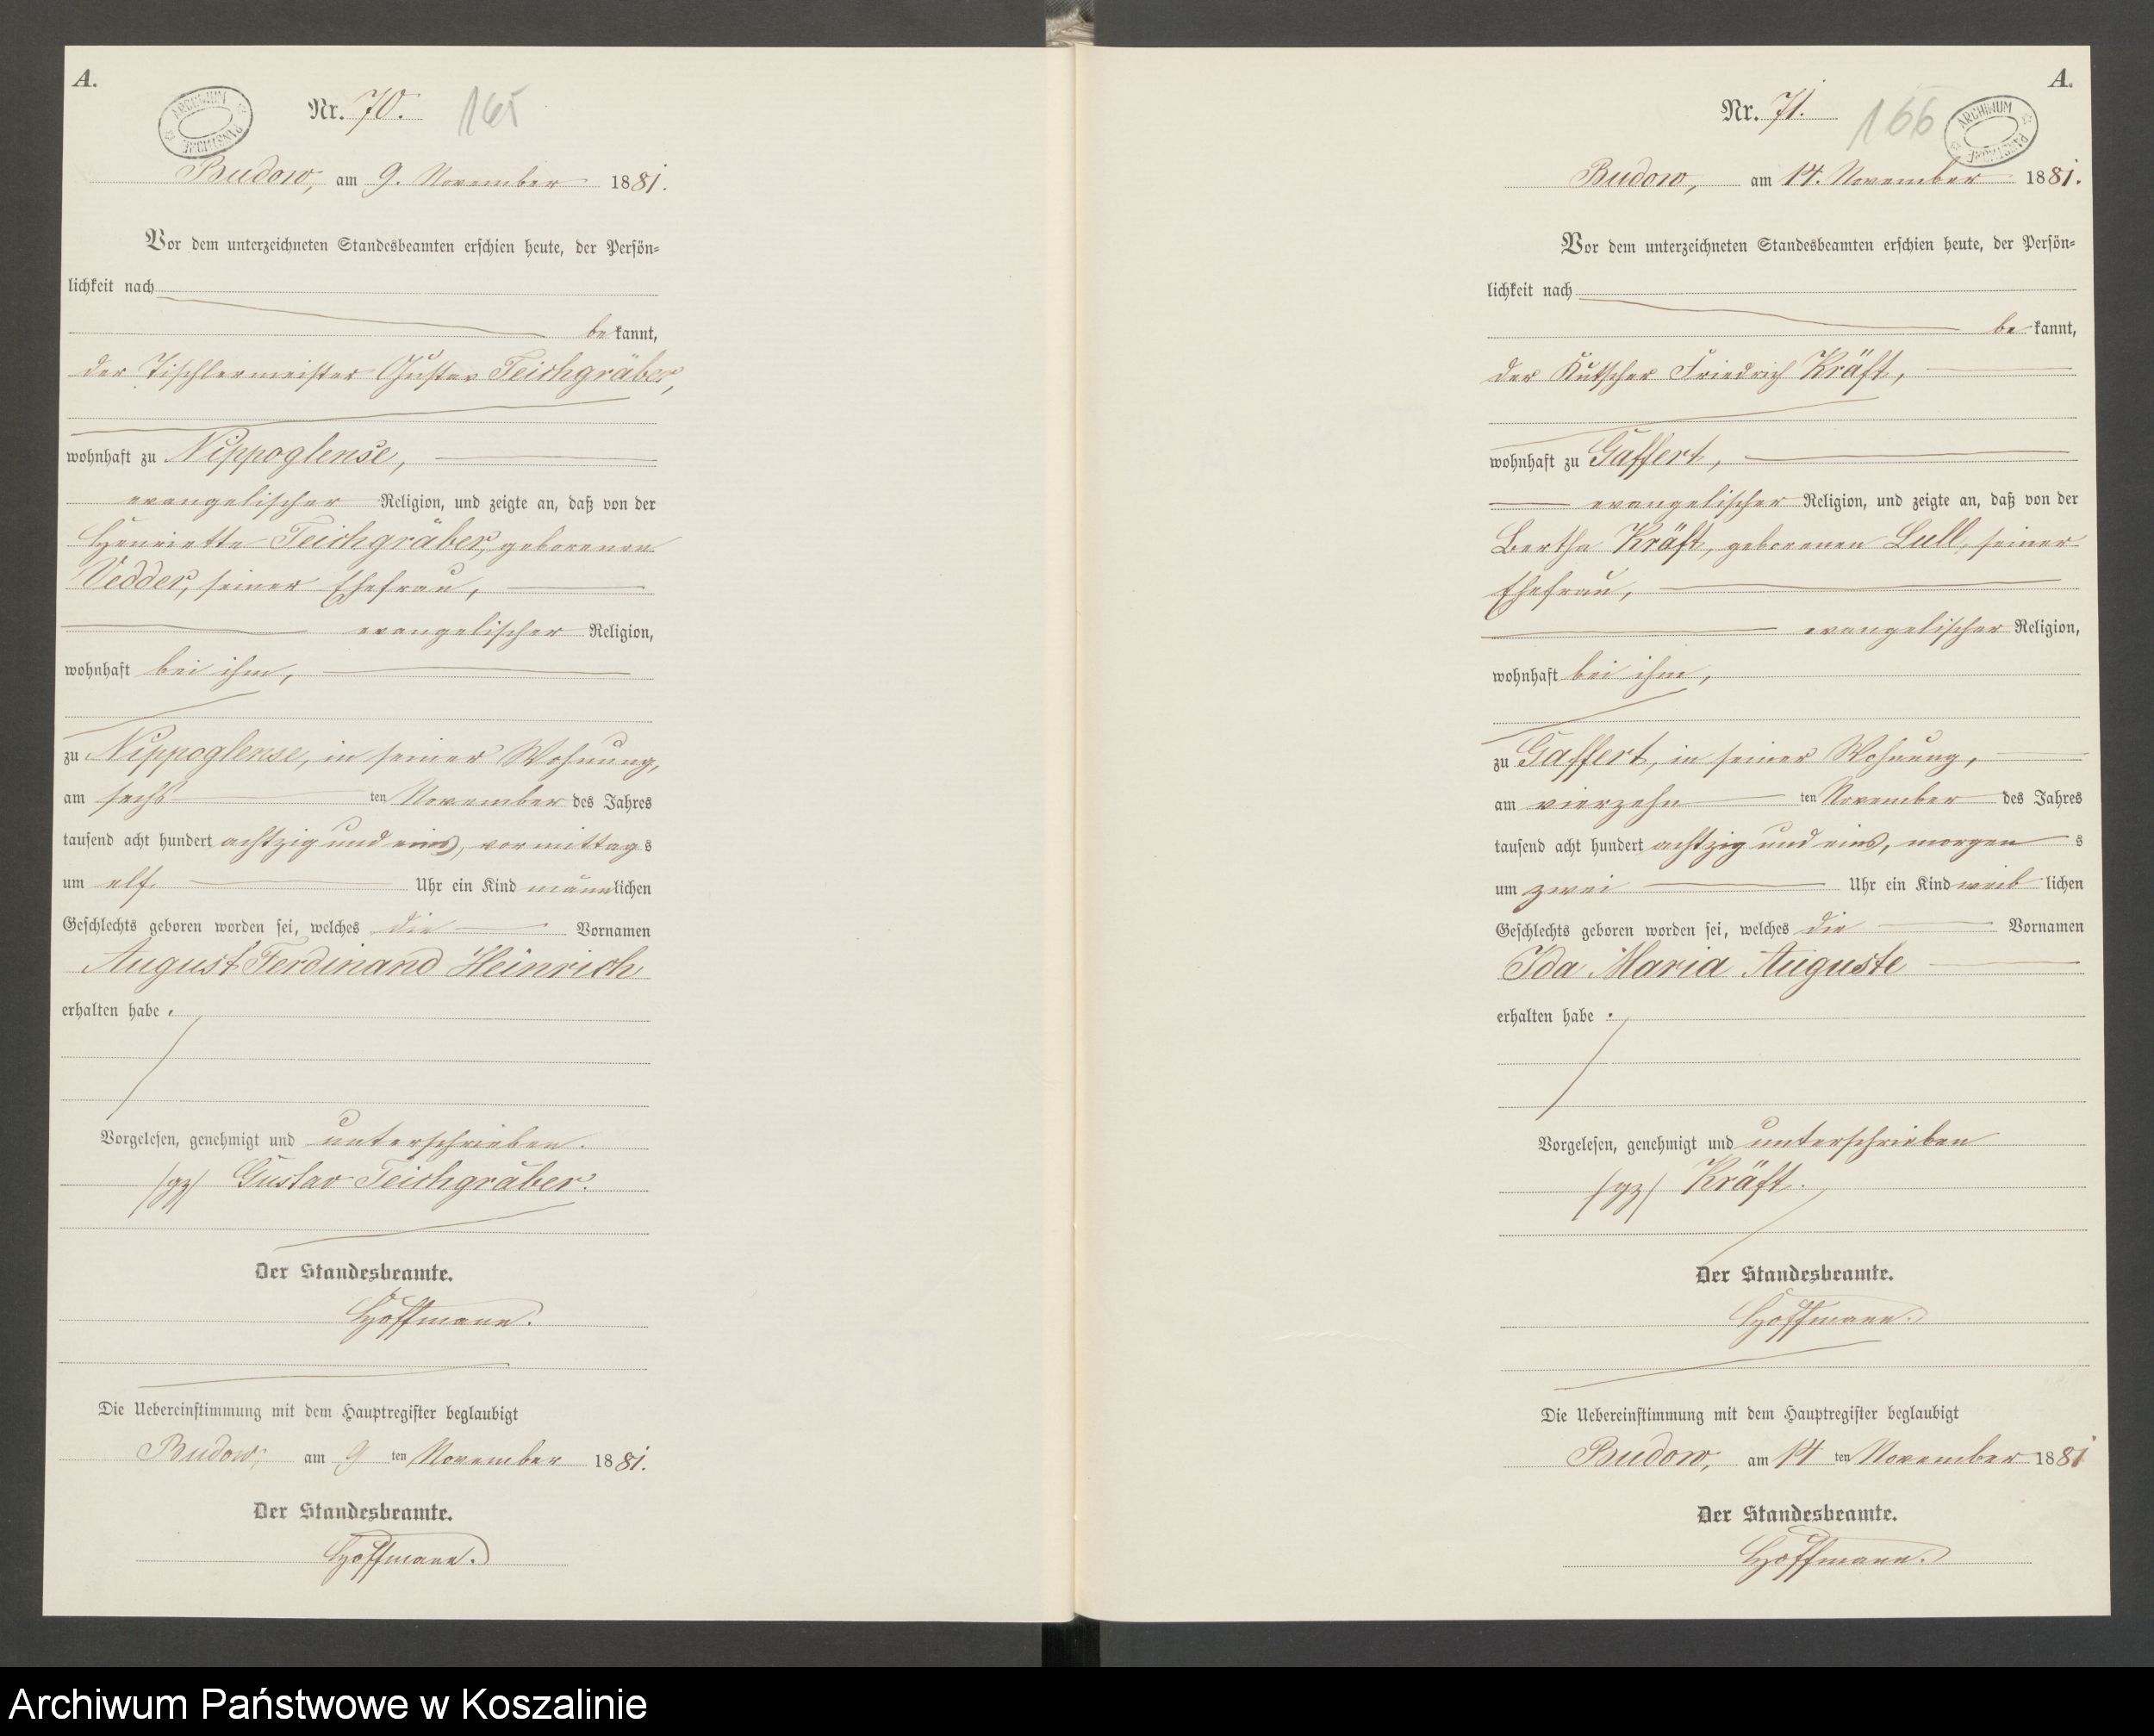 A.
ARCHIWUM PAŃSTWOWE
Nr. 70. 165
Budow, am 9. November 1881.
Vor dem unterzeichneten Standesbeamten erschien heute, der Persön-
lichkeit nach
bekannt,
der Tischlermeister Gustav Teichgräber,
wohnhaft zu Nippoglense,
evangelischer Religion, und zeigte an, daß von der
Henriette Teichgräber, geborenen
Vedder, seiner Ehefrau,
evangelischer Religion,
wohnhaft bei ihm,
zu Nippoglense, in seiner Wohnung,
am sechs ten November des Jahres
tausend acht hundert achtzig und eins, vormittags
um elf Uhr ein Kind männlichen
Geschlechts geboren worden sei, welches die Vornamen
August Ferdinand Heinrich
erhalten habe.
Vorgelesen, genehmigt und unterschrieben.
/gz/ Gustav Teichgräber.
Der Standesbeamte.
Hoffmann.
Die Uebereinstimmung mit dem Hauptregister beglaubigt
Budow, am 9 ten November 1881.
Der Standesbeamte.
Hoffmann.
A.
Nr. 71. 166
ARCHIWUM PAŃSTWOWE
Budow, am 14. November 1881.
Vor dem unterzeichneten Standesbeamten erschien heute, der Persön-
lichkeit nach
bekannt,
der Kutscher Friedrich Kräft,
wohnhaft zu Gaffert,
evangelischer Religion, und zeigte an, daß von der
Bertha Kräft, geborenen Lull, seiner
Ehefrau,
evangelischer Religion,
wohnhaft bei ihm,
zu Gaffert, in seiner Wohnung,
am vierzehn ten November des Jahres
tausend acht hundert achtzig und eins, morgens
um zwei Uhr ein Kind weiblichen
Geschlechts geboren worden sei, welches die Vornamen
Ida Maria Auguste
erhalten habe.
Vorgelesen, genehmigt und unterschrieben
/gz/ Kräft.
Der Standesbeamte.
Hoffmann.
Die Uebereinstimmung mit dem Hauptregister beglaubigt
Budow, am 14 ten November 1881
Der Standesbeamte.
Hoffmann.
Archiwum Państwowe w Koszalinie